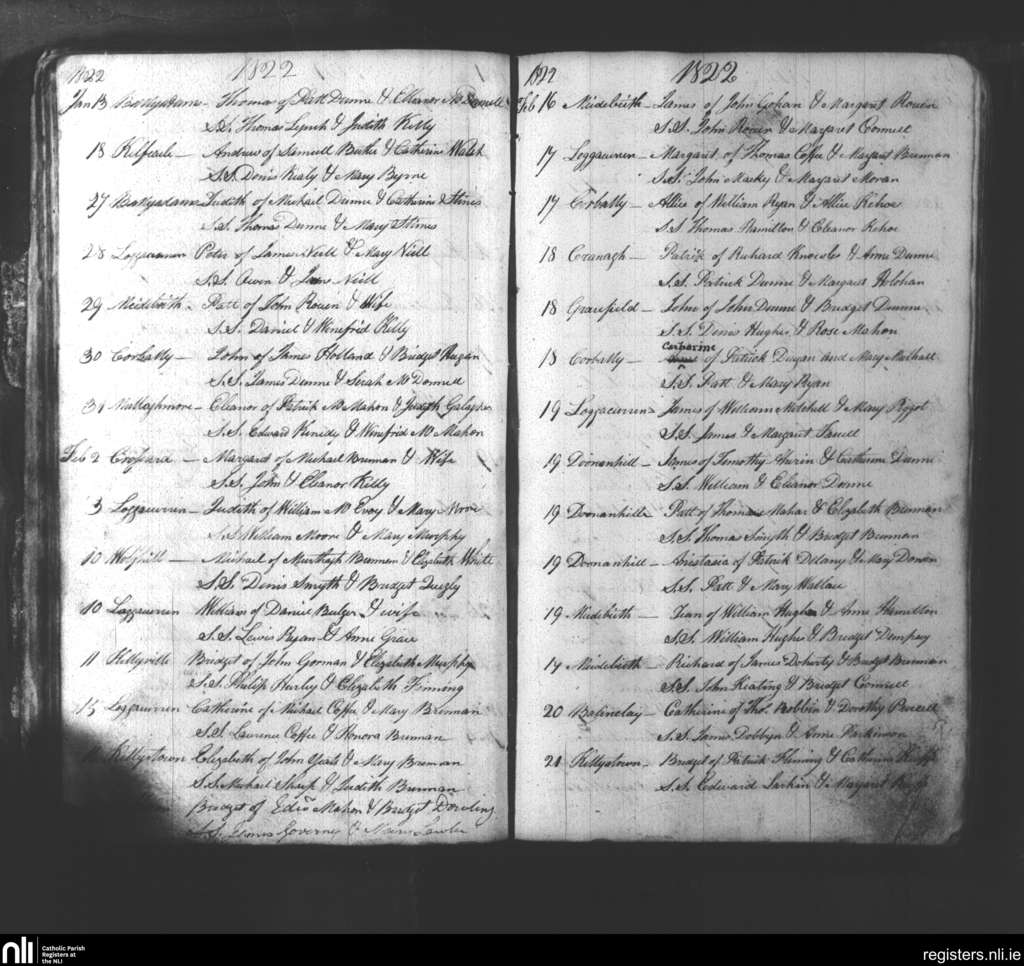 1822
1822
Jan 13 Ballyadams - Thomas of Patt Dunne & Elleanor McDonnell
S.S. Thomas Lynch & Judith Kelly
18 Kilfeacle - Andrew of Samuell Butler & Catherine Walsh
S.S. Denis Kealy & Mary Byrne
27 Ballyadams Judith of Michael Dunne & Catherine Hines
S.S. Thomas Dunne & Mary Hines
28 Loggacurren Peter of James Neill & Mary Neill
S.S. Owen & Neill
29 Meidebirth - Patt of John Rowen & Wife
S.S. Daniel & Winefrid Kelly
30 Corbally - John of James Holland & Bridget Regan
S.S. James Dunne & Sarah McDonnell
31 Mullaghmore - Eleanor of Patrick McMahon & Judith Galagher
S.S. Edward Kenedy & Winefrid McMahon
Feb 2 Crossard - Margaret of Michael Brennan & Wife
S.S. John & Eleanor Kelly
3 Loggacurren - Judith of William McEvoy & Mary Moore
S.S. William Moore & Mary Murphy
10 Wolfhill - Michael of Murthagh Brennan & Elizabeth White
S.S. Denis Smyth & Bridget Quigly
10 Loggacurren William of Daniel Bulger & wife
S.S. Lewis Ryan & Anne Grace
11 Kellyville Bridget of John Gorman & Elizabeth Murphy
S.S. Philip Hurley & Elizabeth
15 Loggacurren Catherine of Michael Coffee & Mary Brennan
S.S. Laurence Coffee & Honora Brennan
Killystown Elizabeth of John Yeats & Mary Brennan
S.S. Michael & Judith Brennan
Bridget of Edwd Mahon & Bridget Dowling
S.S. James Governey & Mary Lawler
1822
1822
Feb 16 Meidebirth - James of John Gohan & Margaret Rowen
S.S. John Rowen & Margaret Connell
17 Loggacurren - Margaret of Thomas Coffee & Margaret Brennan
S.S. John Macky & Margaret Moran
17 Corbally - Allice of William Ryan & Allice Kehoe
S.S. Thomas Hamilton & Eleanor Kehoe
18 Cranagh - Patrick of Richard Knowles & Anne Dunne
S.S. Patrick Dunne & Margaret Holohan
18 Gracefield - John of John Dunne & Bridget Dunne
S.S. Denis Hughes & Rose Mahon
Catharine
18 Corbally - of Patrick Dugan and Mary Mulhall
S.S. Patt & Mary Ryan
19 Loggacurren - James of William Mitchell & Mary Pigot
S.S. James & Margaret Farrell
19 Doonanhill - James of Timothy & Catherine Dunne
S.S. William & Eleanor Dunne
19 Doonanhille Patt of Thomas Mahar & Elizabeth Brennan
S.S. Thomas Smyth & Bridget Brennan
19 Doonanhill - Anastasia of Patrick Delany & Mary Dowen
S.S. Patt & Mary Wallace
19 Meidebirth - Jean of William Hughes & Anne Hamilton
S.S. William Hughes & Bridget Dempsey
17 Meidebirth - Richard of James Doherty & Bridget Brennan
S.S. John Keating & Bridget Connell
20 Balinclay - Catherine of Thos Dobbin & Dorothy Purcell
S.S. James Dobbyn & Anne Parkinson
21 Killystown - Bridget of Patrick Fleming & Catherine
S.S. Edward Larkin & Margaret
nli
Catholic Parish
Registers at
the NLI
registers.nli.ie